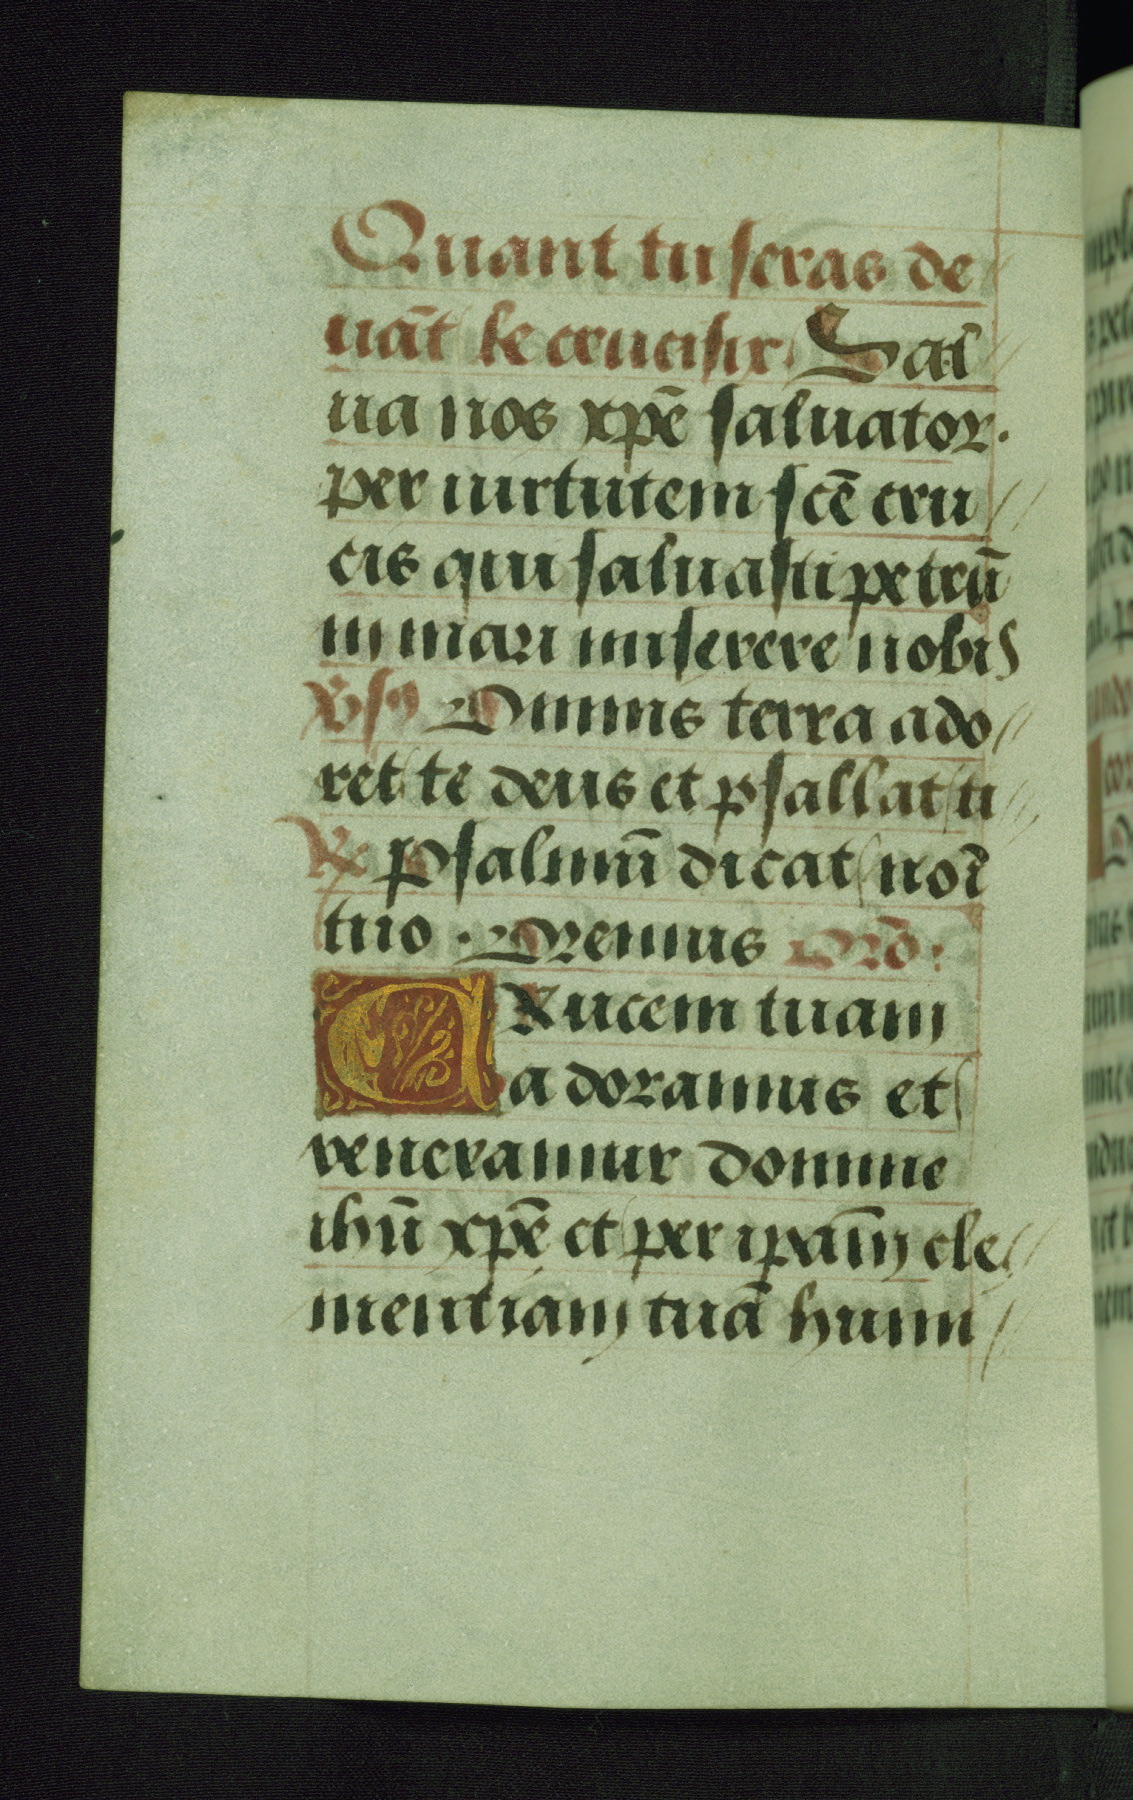 Quant tu seras de
uāt le crucifix. Sal
ua nos xpē saluator.
per uirtutem scē cru
cis qui saluasti petrū
in mari miserere nobis
V̄s9 Omnis terra ado
ret te deus et psallat ti
Rx Psalmū dicat noī
tuo. Oremus Orō:
CRucem tuam
adoramus et
veneramur domine
ihū xpē et per ipam̄ cle
mentiam tuā humi